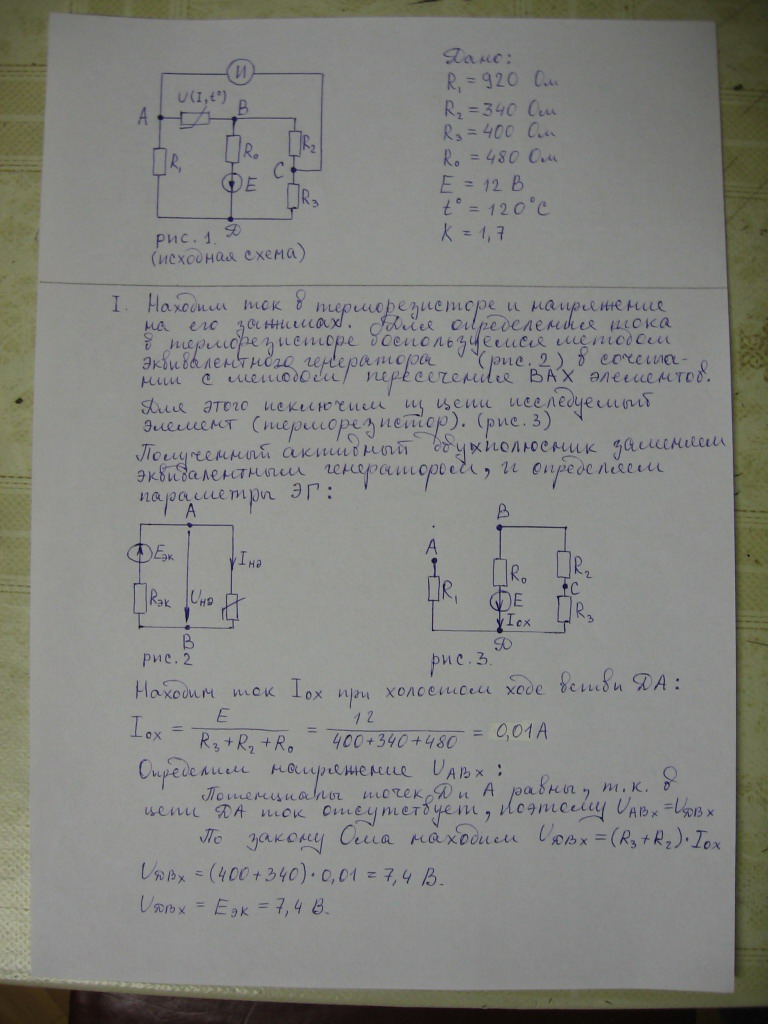 И
U(I,t°)
A
B
R₁
R₀
R₂
C
E
R₃
Д
рис. 1.
(исходная схема)
Дано:
R₁ = 920 Ом
R₂ = 340 Ом
R₃ = 400 Ом
R₀ = 480 Ом
E = 12 В
t° = 120°C
K = 1,7
I. Находим ток в терморезисторе и напряжение
на его зажимах. Для определения тока
в терморезисторе воспользуемся методом
эквивалентного генератора (рис. 2) в сочета-
нии с методом пересечения ВАХ элементов.
Для этого исключим из цепи исследуемый
элемент (терморезистор). (рис. 3)
Полученный активный двухполюсник заменяем
эквивалентным генератором, и определяем
параметры ЭГ:
A
Eэк
Iнэ
Rэк
Uнэ
B
рис. 2
B
A
R₀
R₂
R₁
C
E
Iох
R₃
Д
рис. 3.
Находим ток Iох при холостом ходе ветви ДА:
Iох = E / (R₃ + R₂ + R₀) = 12 / (400+340+480) = 0,01 А
Определим напряжение UАВх:
Потенциалы точек Д и А равны, т.к. в
цепи ДА ток отсутствует, поэтому UАВх = UДВх
По закону Ома находим UДВх = (R₃ + R₂) · Iох
UДВх = (400 + 340) · 0,01 = 7,4 В.
UДВх = Eэк = 7,4 В.